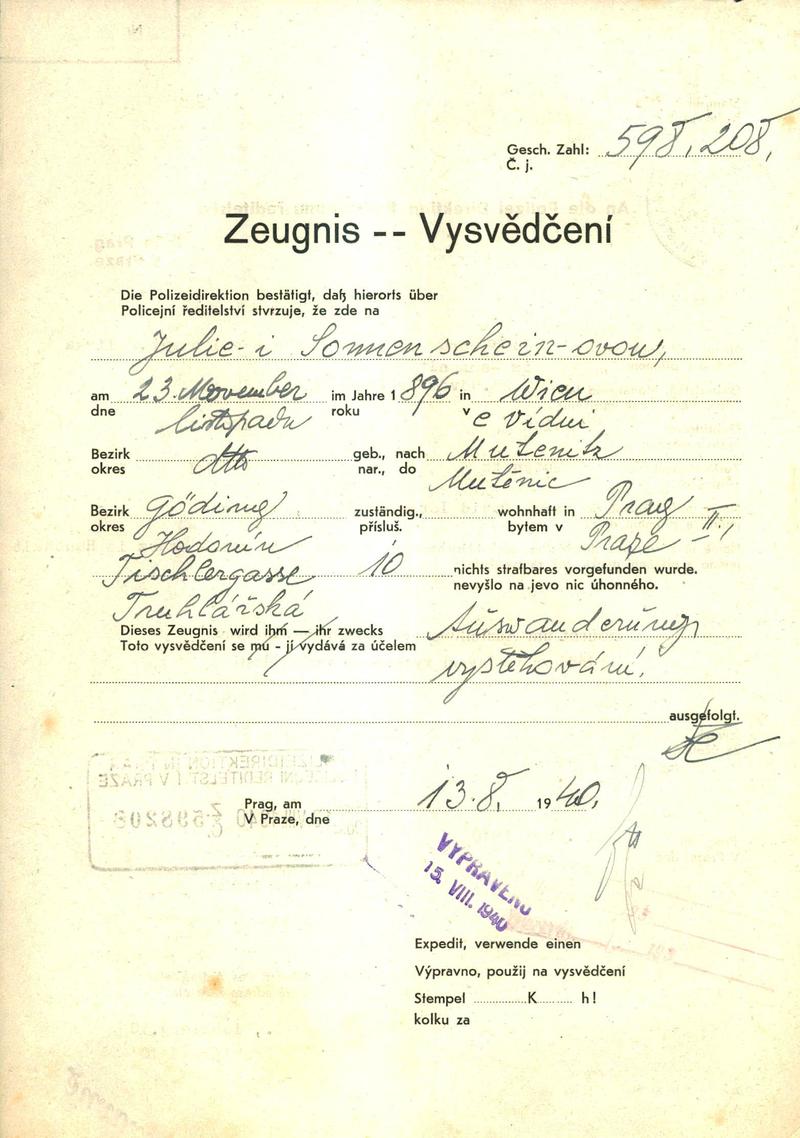 Gesch. Zahl: 598.208.
Č. j.
Zeugnis -- Vysvědčení
Die Polizeidirektion bestätigt, daß hierorts über
Policejní ředitelství stvrzuje, že zde na
Julie-i Sonnenschein-ovou,
am 23. November im Jahre 1 896 in Wien
dne listopadu roku v e Vídni
Bezirk dtto geb., nach Mutenitz
okres nar., do Mutěnic
Bezirk Göding zuständig., wohnhaft in Prag II.,
okres Hodonín přísluš. bytem v Praze
Tischlergasse 10 nichts strafbares vorgefunden wurde.
nevyšlo na jevo nic úhonného.
Truhlářská
Dieses Zeugnis wird ihm — ihr zwecks Auswanderung
Toto vysvědčení se mu - jí vydává za účelem vystěhování.
ausgefolgt.
Prag, am 13.8. 19 40.
V Praze, dne
POLIZEIDIREKTION IN PRAG
POLICEJNÍ ŘEDITELSTVÍ V PRAZE
598208
VYPRAVENO
15. VIII. 1940
Expedit, verwende einen
Výpravno, použij na vysvědčení
Stempel K h!
kolku za